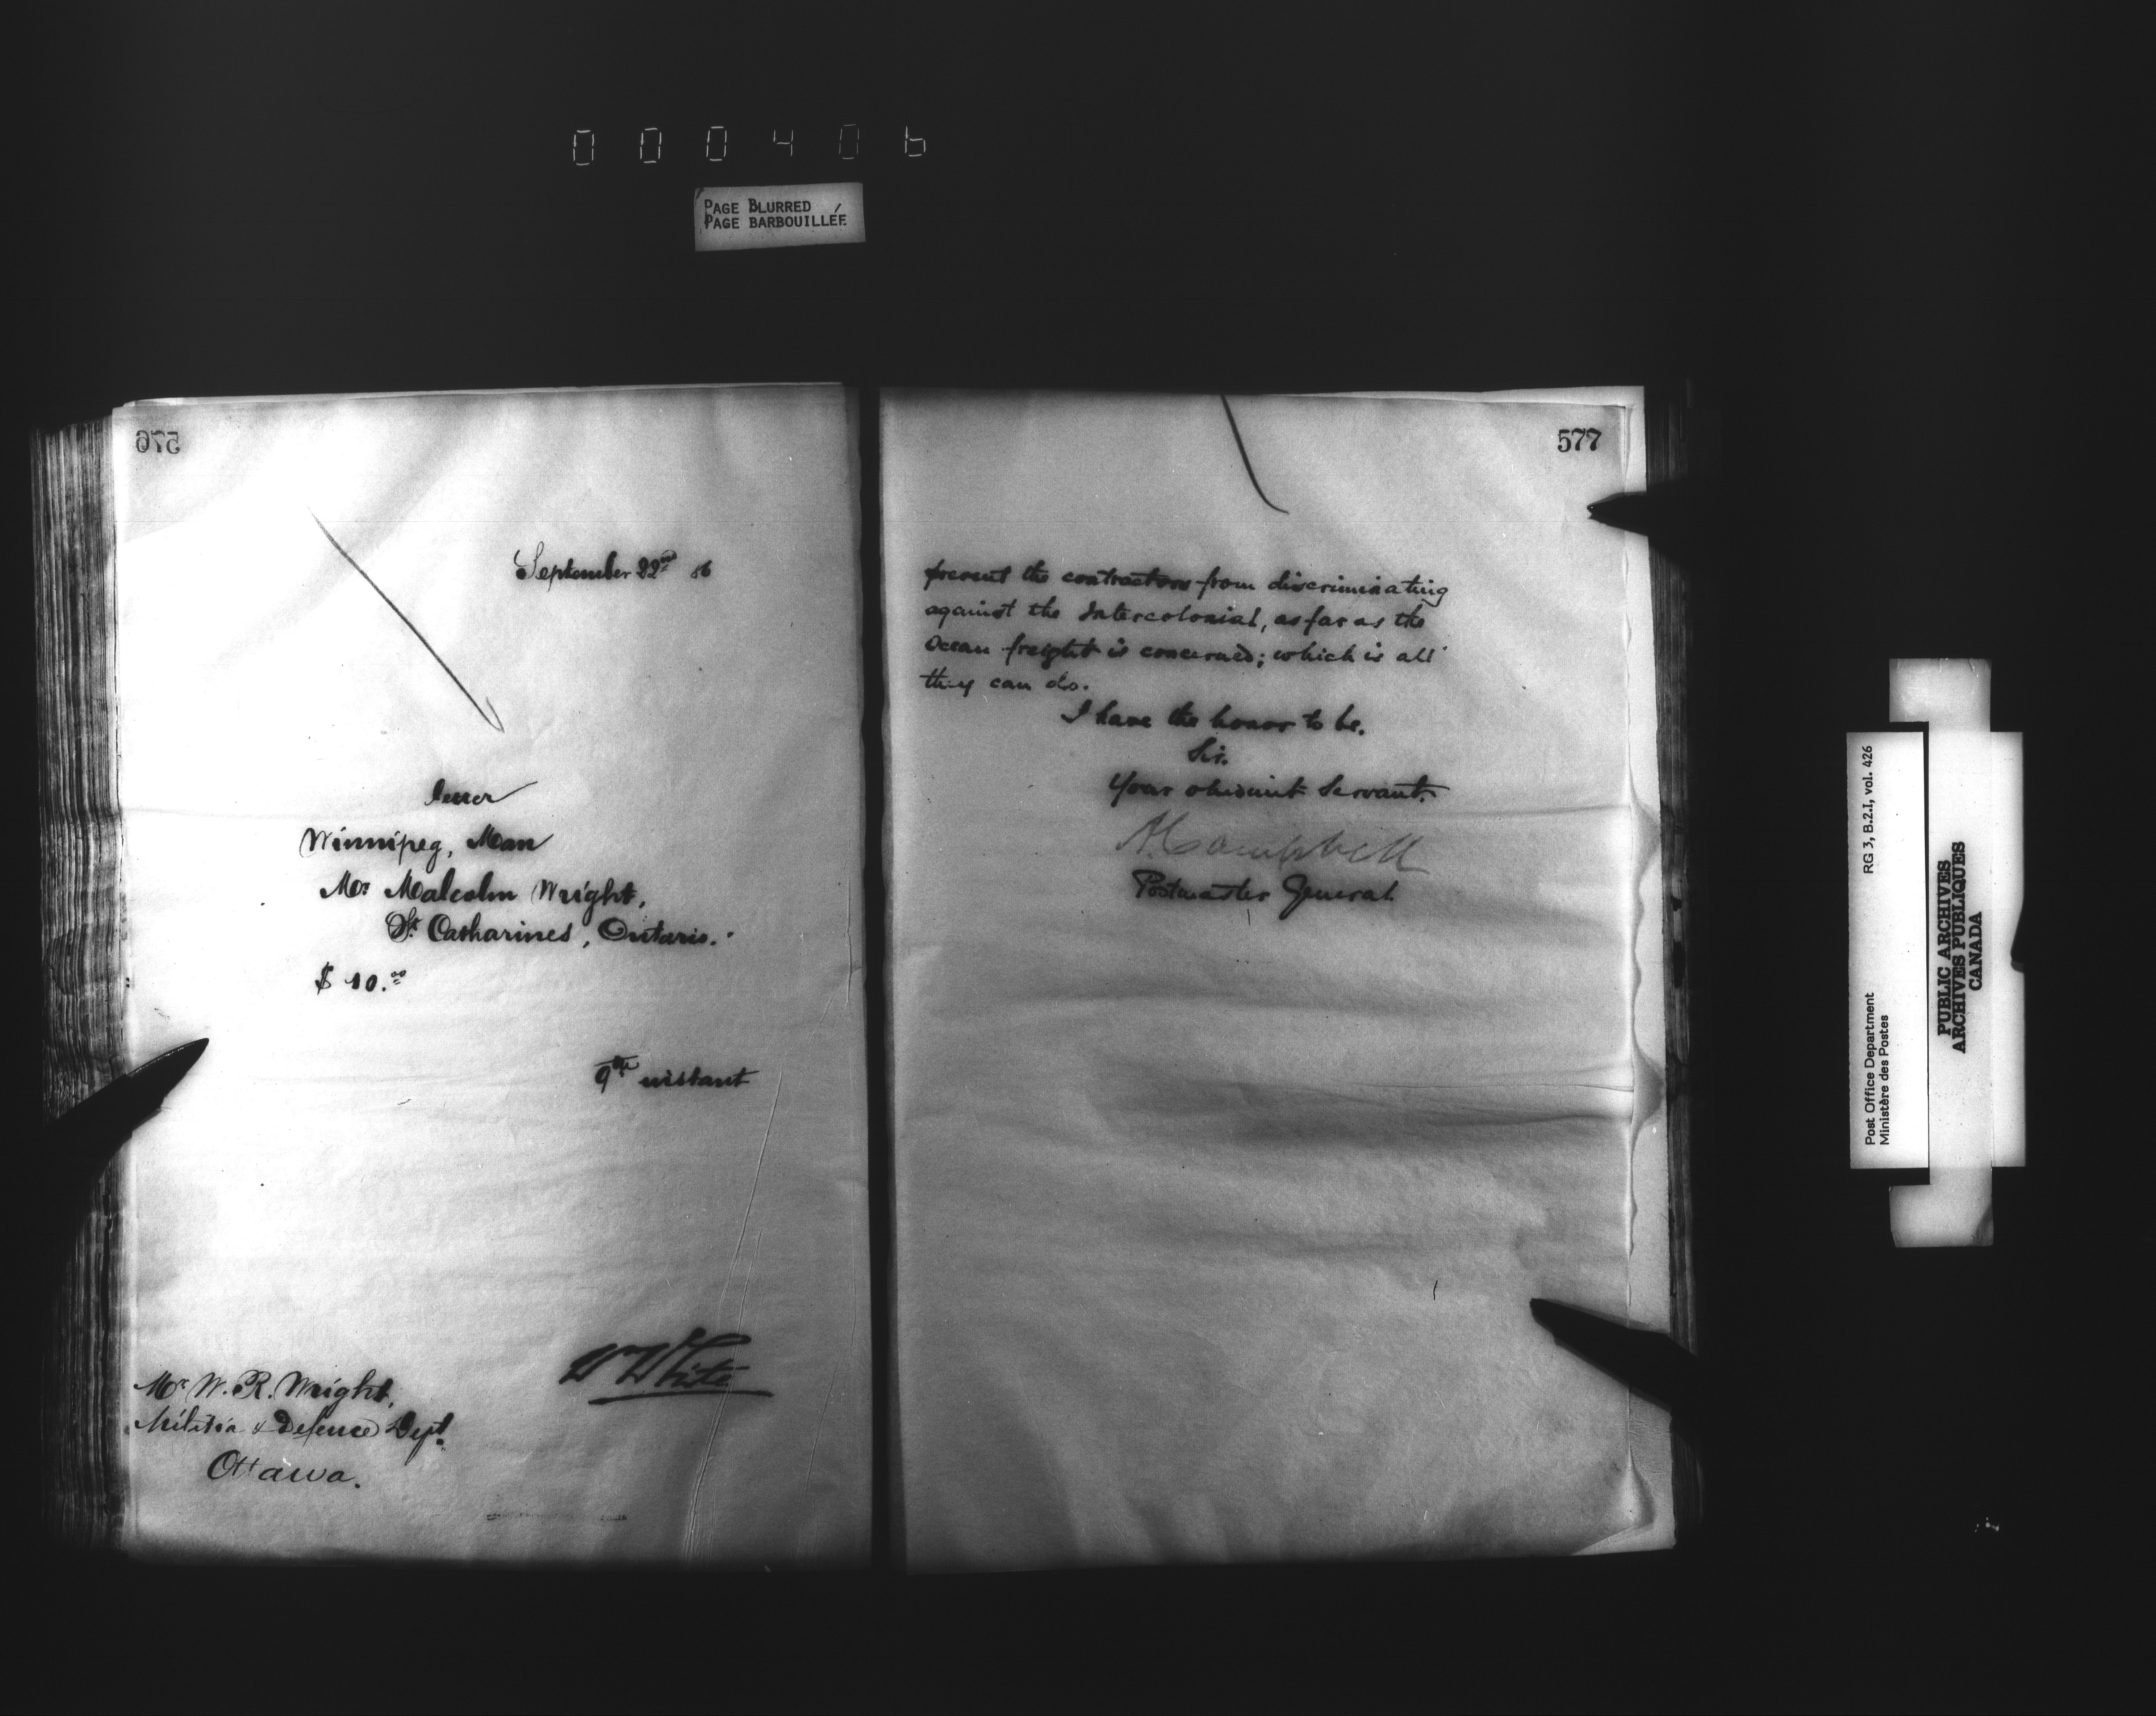 000406
PAGE BLURRED
PAGE BARBOUILLÉE
576
September 22nd 86
letter
Winnipeg, Man
Mr Malcolm Wright,
St Catharines, Ontario.
$ 10.00
9th instant
W White
Mr W. R. Wright,
Militia & Defence Dept.
Ottawa.
577
prevent the contractors from discriminating
against the Intercolonial, as far as the
Ocean freight is concerned; which is all
they can do.
I have the honor to be,
Sir,
Your obedient Servant,
A Campbell
Postmaster General
Post Office Department
Ministère des Postes
RG 3, B.2.I, vol. 426
PUBLIC ARCHIVES
ARCHIVES PUBLIQUES
CANADA